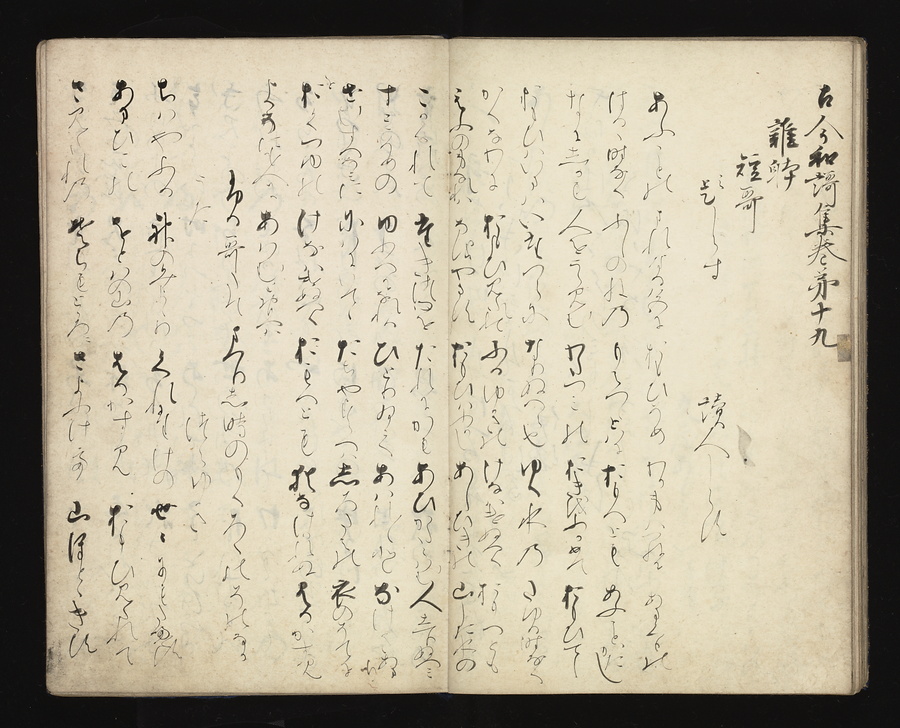 古今和謌集巻第十九
雜躰
短哥
題しらす 讀人しらす
あふことの まれなるいろに おもひそめ わか身はつねに あまくもの
はるゝ時なく ふしのねの もえつゝとはに おもへとも あふことかたし
なにしかも 人をうらみむ わたつみの おきをふかめて おもひてし
おもひはいまは いたつらに なりぬへらなり ゆく水の たゆる時なく
かくなわに おもひみたれて ふるゆきの けなはけぬへく おもへとも
えふの身なれは なほやます おもひはふかし あしひきの 山した水の
こかくれて たきつ心を たれにかも あひかたらはむ 人しりぬへみ
すみそめの ゆふへになれは ひとりゐて あはれあはれと なけきあまり
せむすへなみに にはにいてゝ たちやすらへは しろたへの 衣のそてに
おくつゆの けなはけぬへく おもへとも なほなけかれぬ はるかすみ
よそにも人に あはむとおもへは
ふる哥たてまつりし時のもくろくのそのなか
うた つらゆき
ちはやふる 神のみよゝり くれ竹の 世ゝにもたえす
あまひこの おとは山の はるかすみ おもひみたれて
さみたれの そらもとゝろに さよふけて 山ほとゝきす